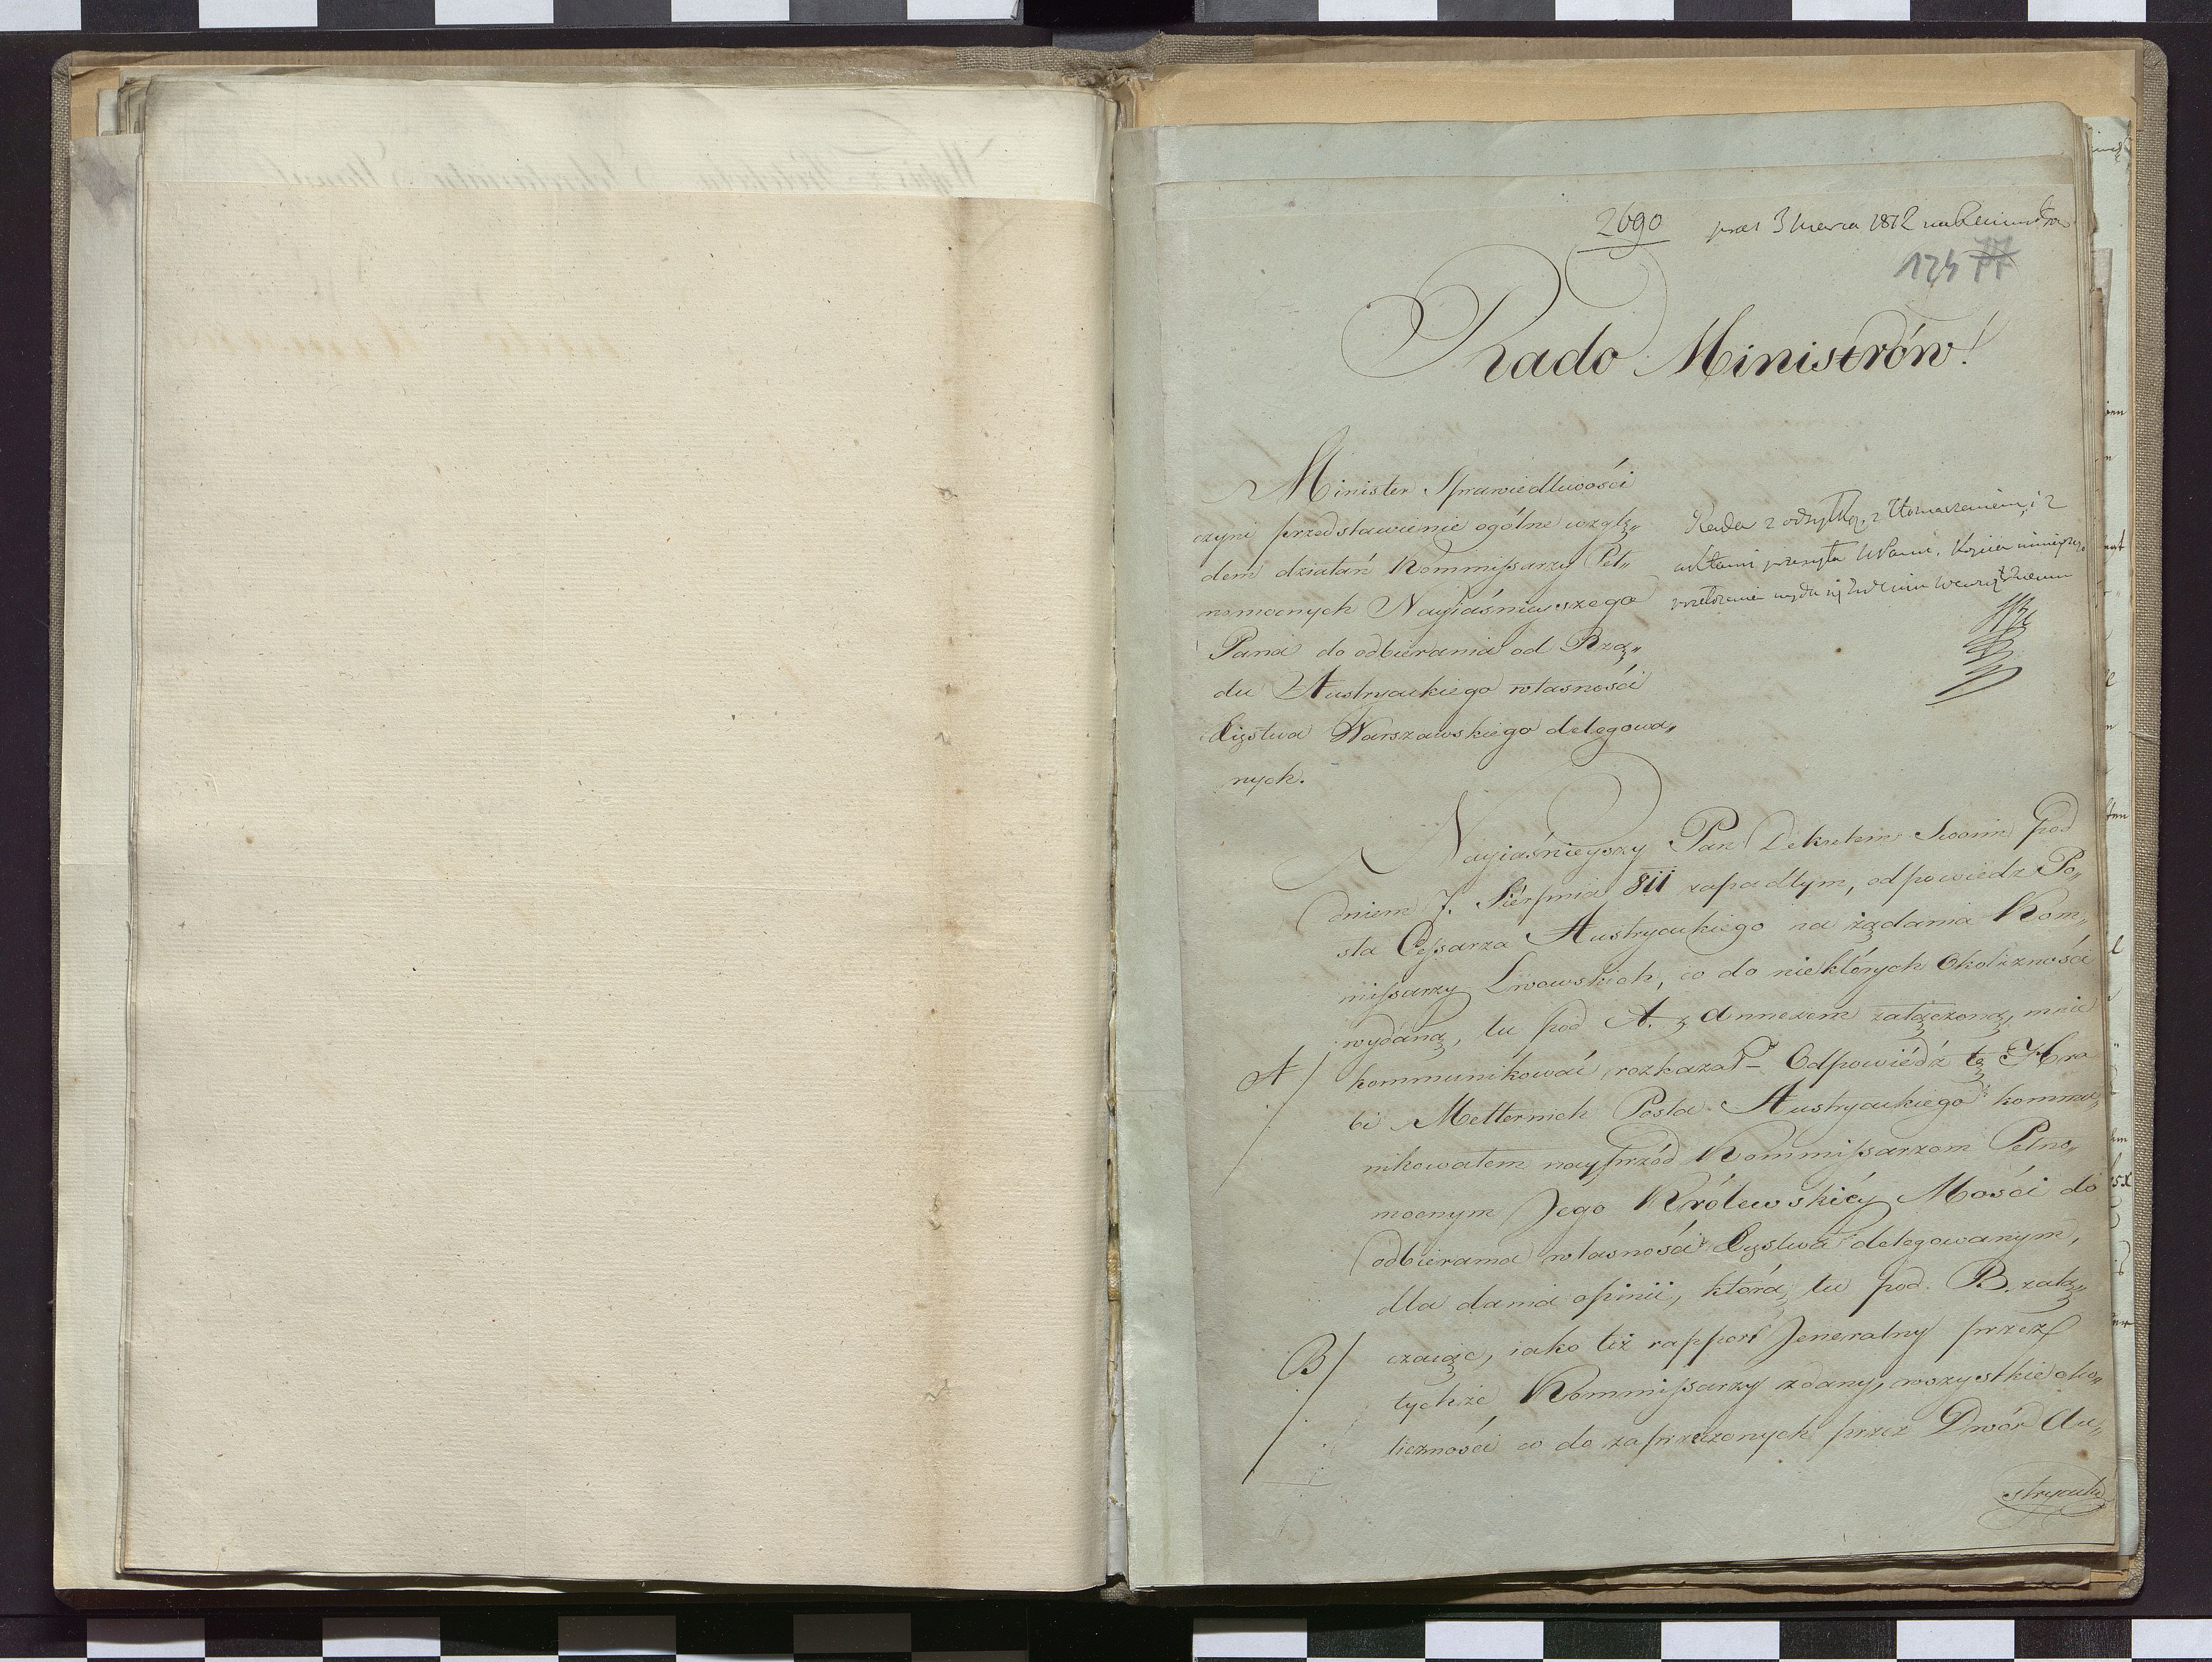 2690 3 1812
124 77
Rado Ministrów!
Minister Sprawiedliwości
czyni przedstawienie ogólne wzglę„
dem działań Kommissarzy Peł„
nomocnych Nayiaśnieyszego
Pana do odbierania od Rzą„
du Austryackiego własności
Xięstwa Warszawskiego delegowa„
nych.
Rada z odsyłką, z tłomaczeniem, i z
Nayiaśnieyszy Pan Dekretem Swoim pod
dniem 7. Sierpnia 811 zapadłym, odpowiedź Po„
sła Cessarza Austryackiego na żądania Kom„
missarzy Lwowskich, co do niektórych Okoliczności
wydaną, tu pod A. z Annexem załączoną, mnie
A/ kommunikować rozkazał– Odpowiédź tę Hra
bi Metternich Posła Austryackiego kommu„
nikowałem nayprzód Kommissarzom Pełno„
mocnym Jego Królewskiéy Mości do
odbierania własności Xięstwa delegowanym,
dla dania opinii, którą tu pod B. załą„
B/ czaiąc, iako też rapport Jeneralny przez
tychże Kommissarzy zdany, wszystkie oko„
liczności co do zaprzeczonych przez Dwór Au„
stryacki